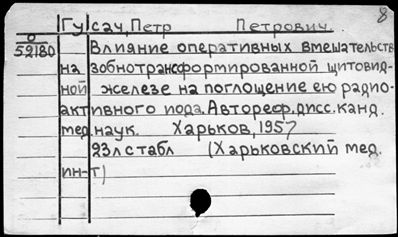 8
Гусач, Петр Петрович.
О
52180
Влияние оперативных вмешательств
на зобнотрансформированной щитовид-
ной железе на поглощение ею радио-
активного иода. Автореф. дисс. канд.
мед. наук. Харьков, 1957
23л с табл (Харьковский мед.
ин-т)